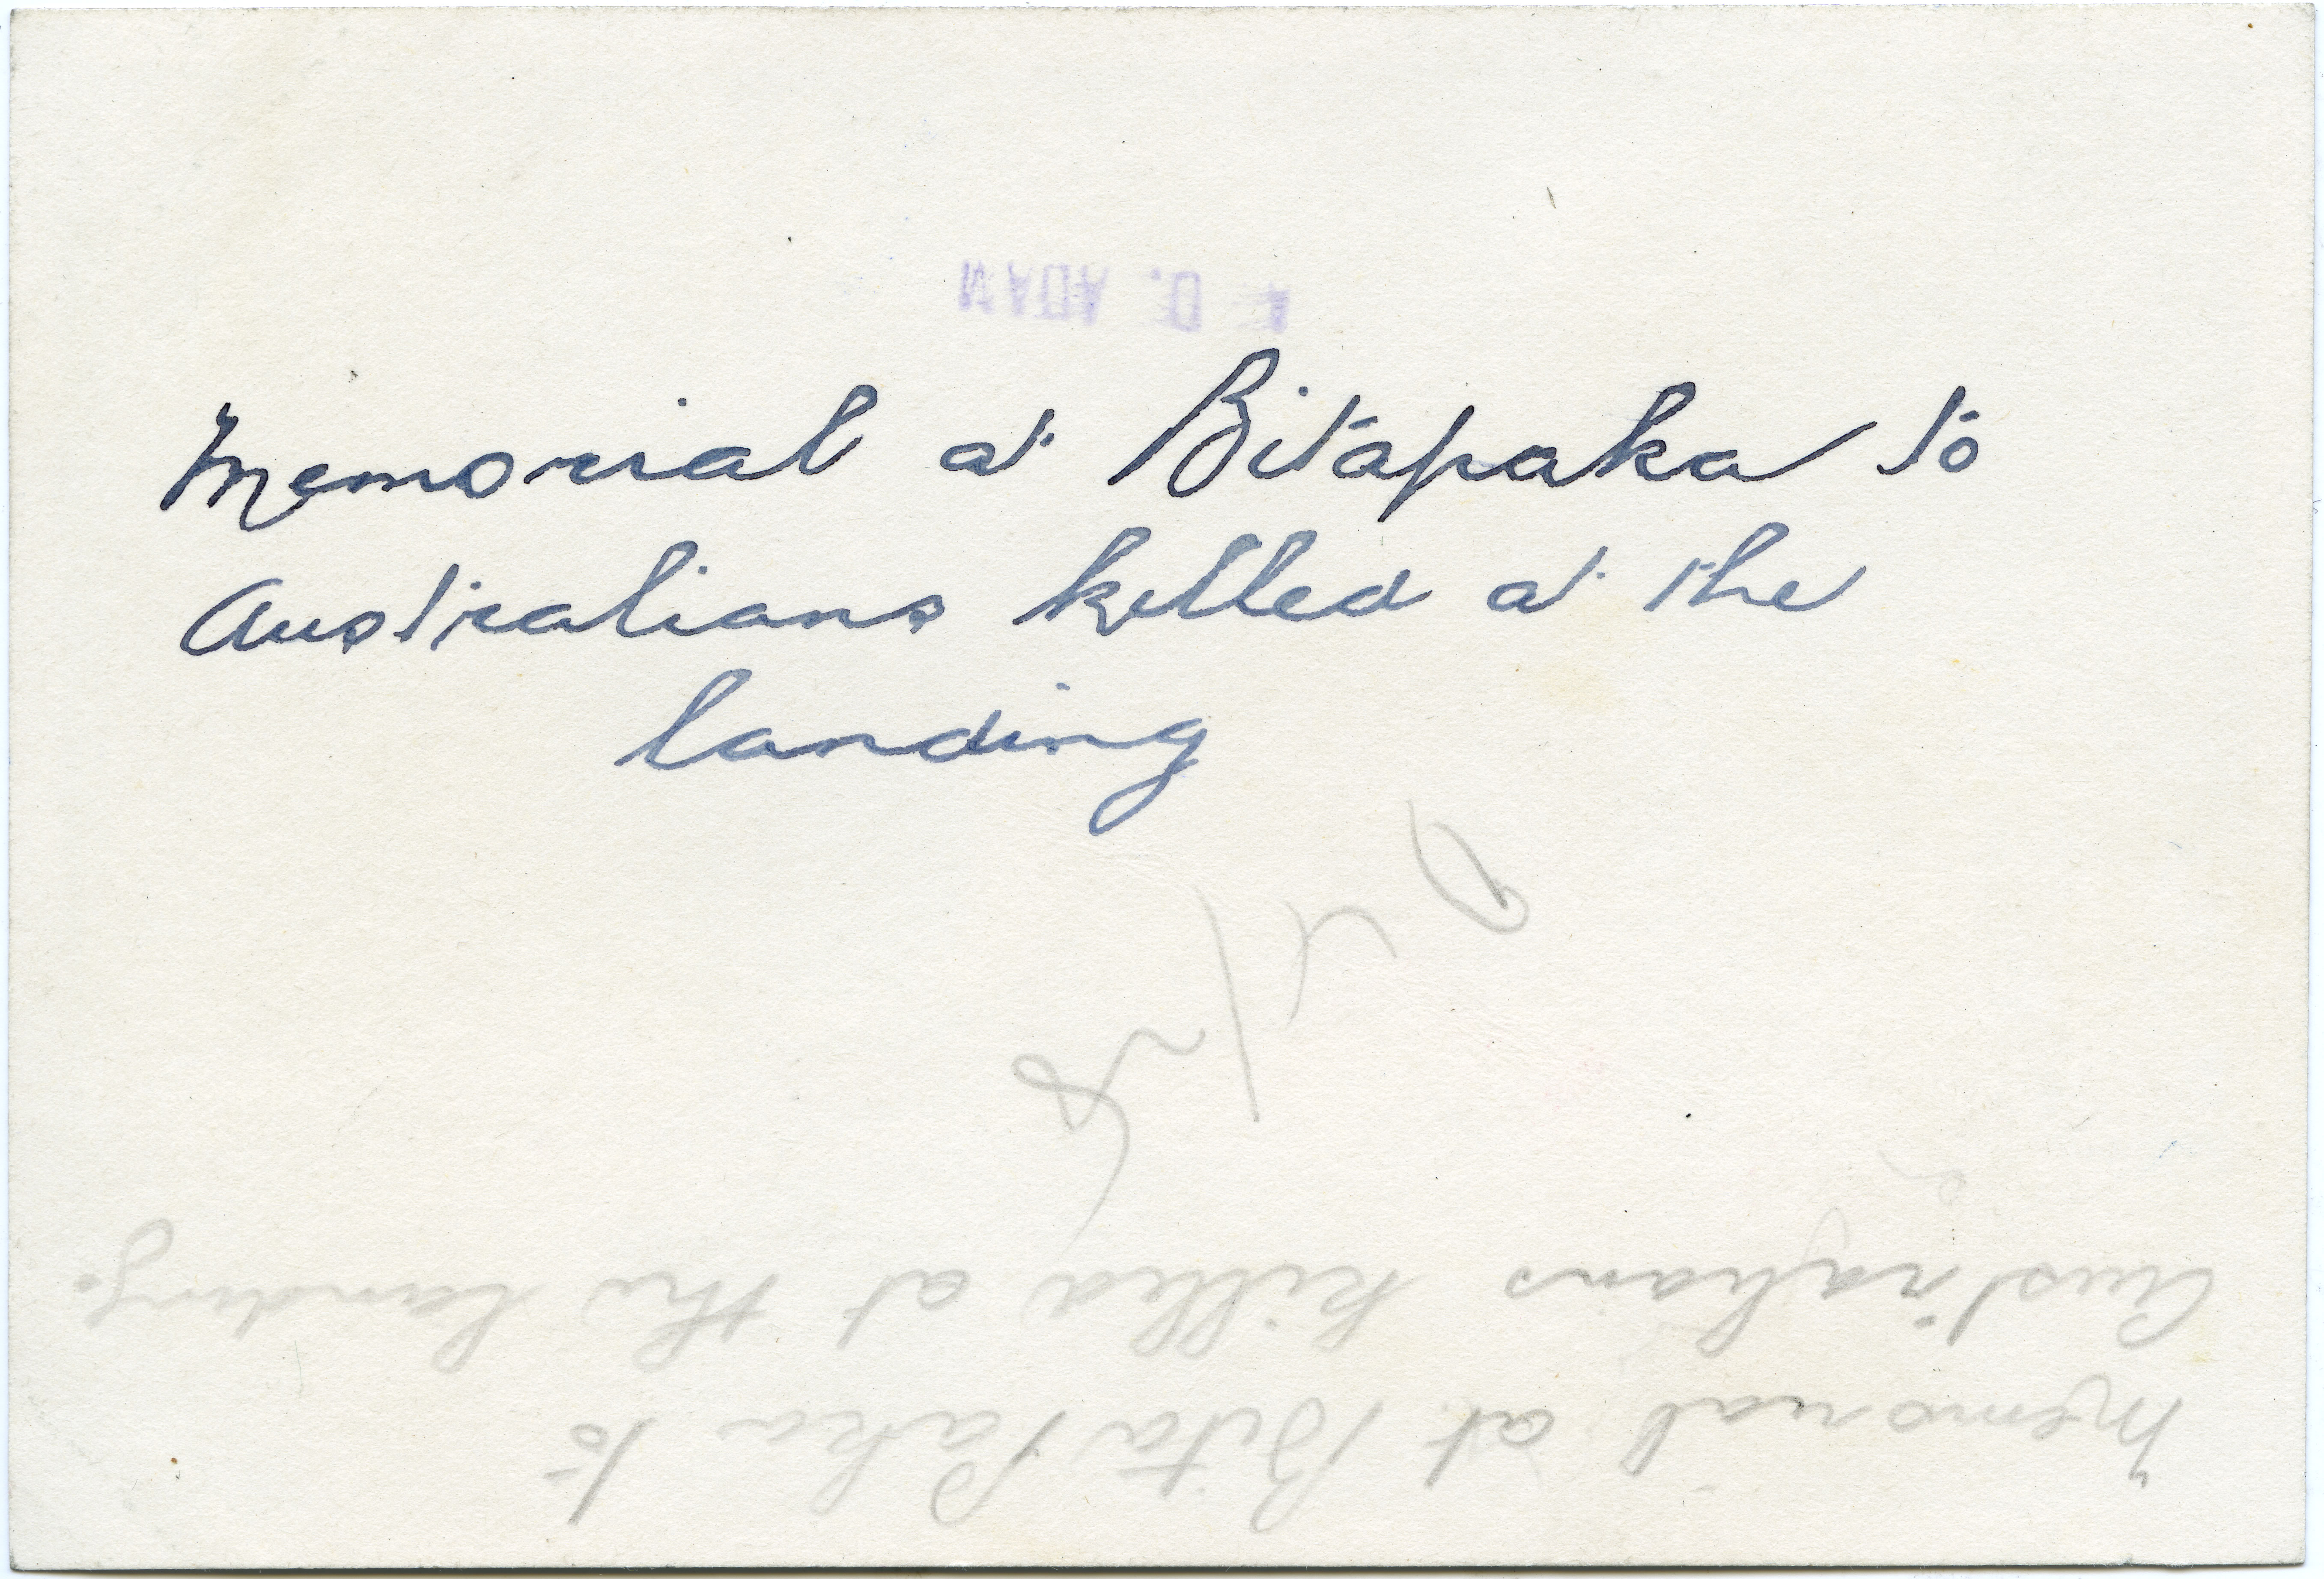 D. ADAM
Memorial at Bitapaka to
Australians killed at the
landing
Memorial at Bita Paka to
Australians killed at the landing.